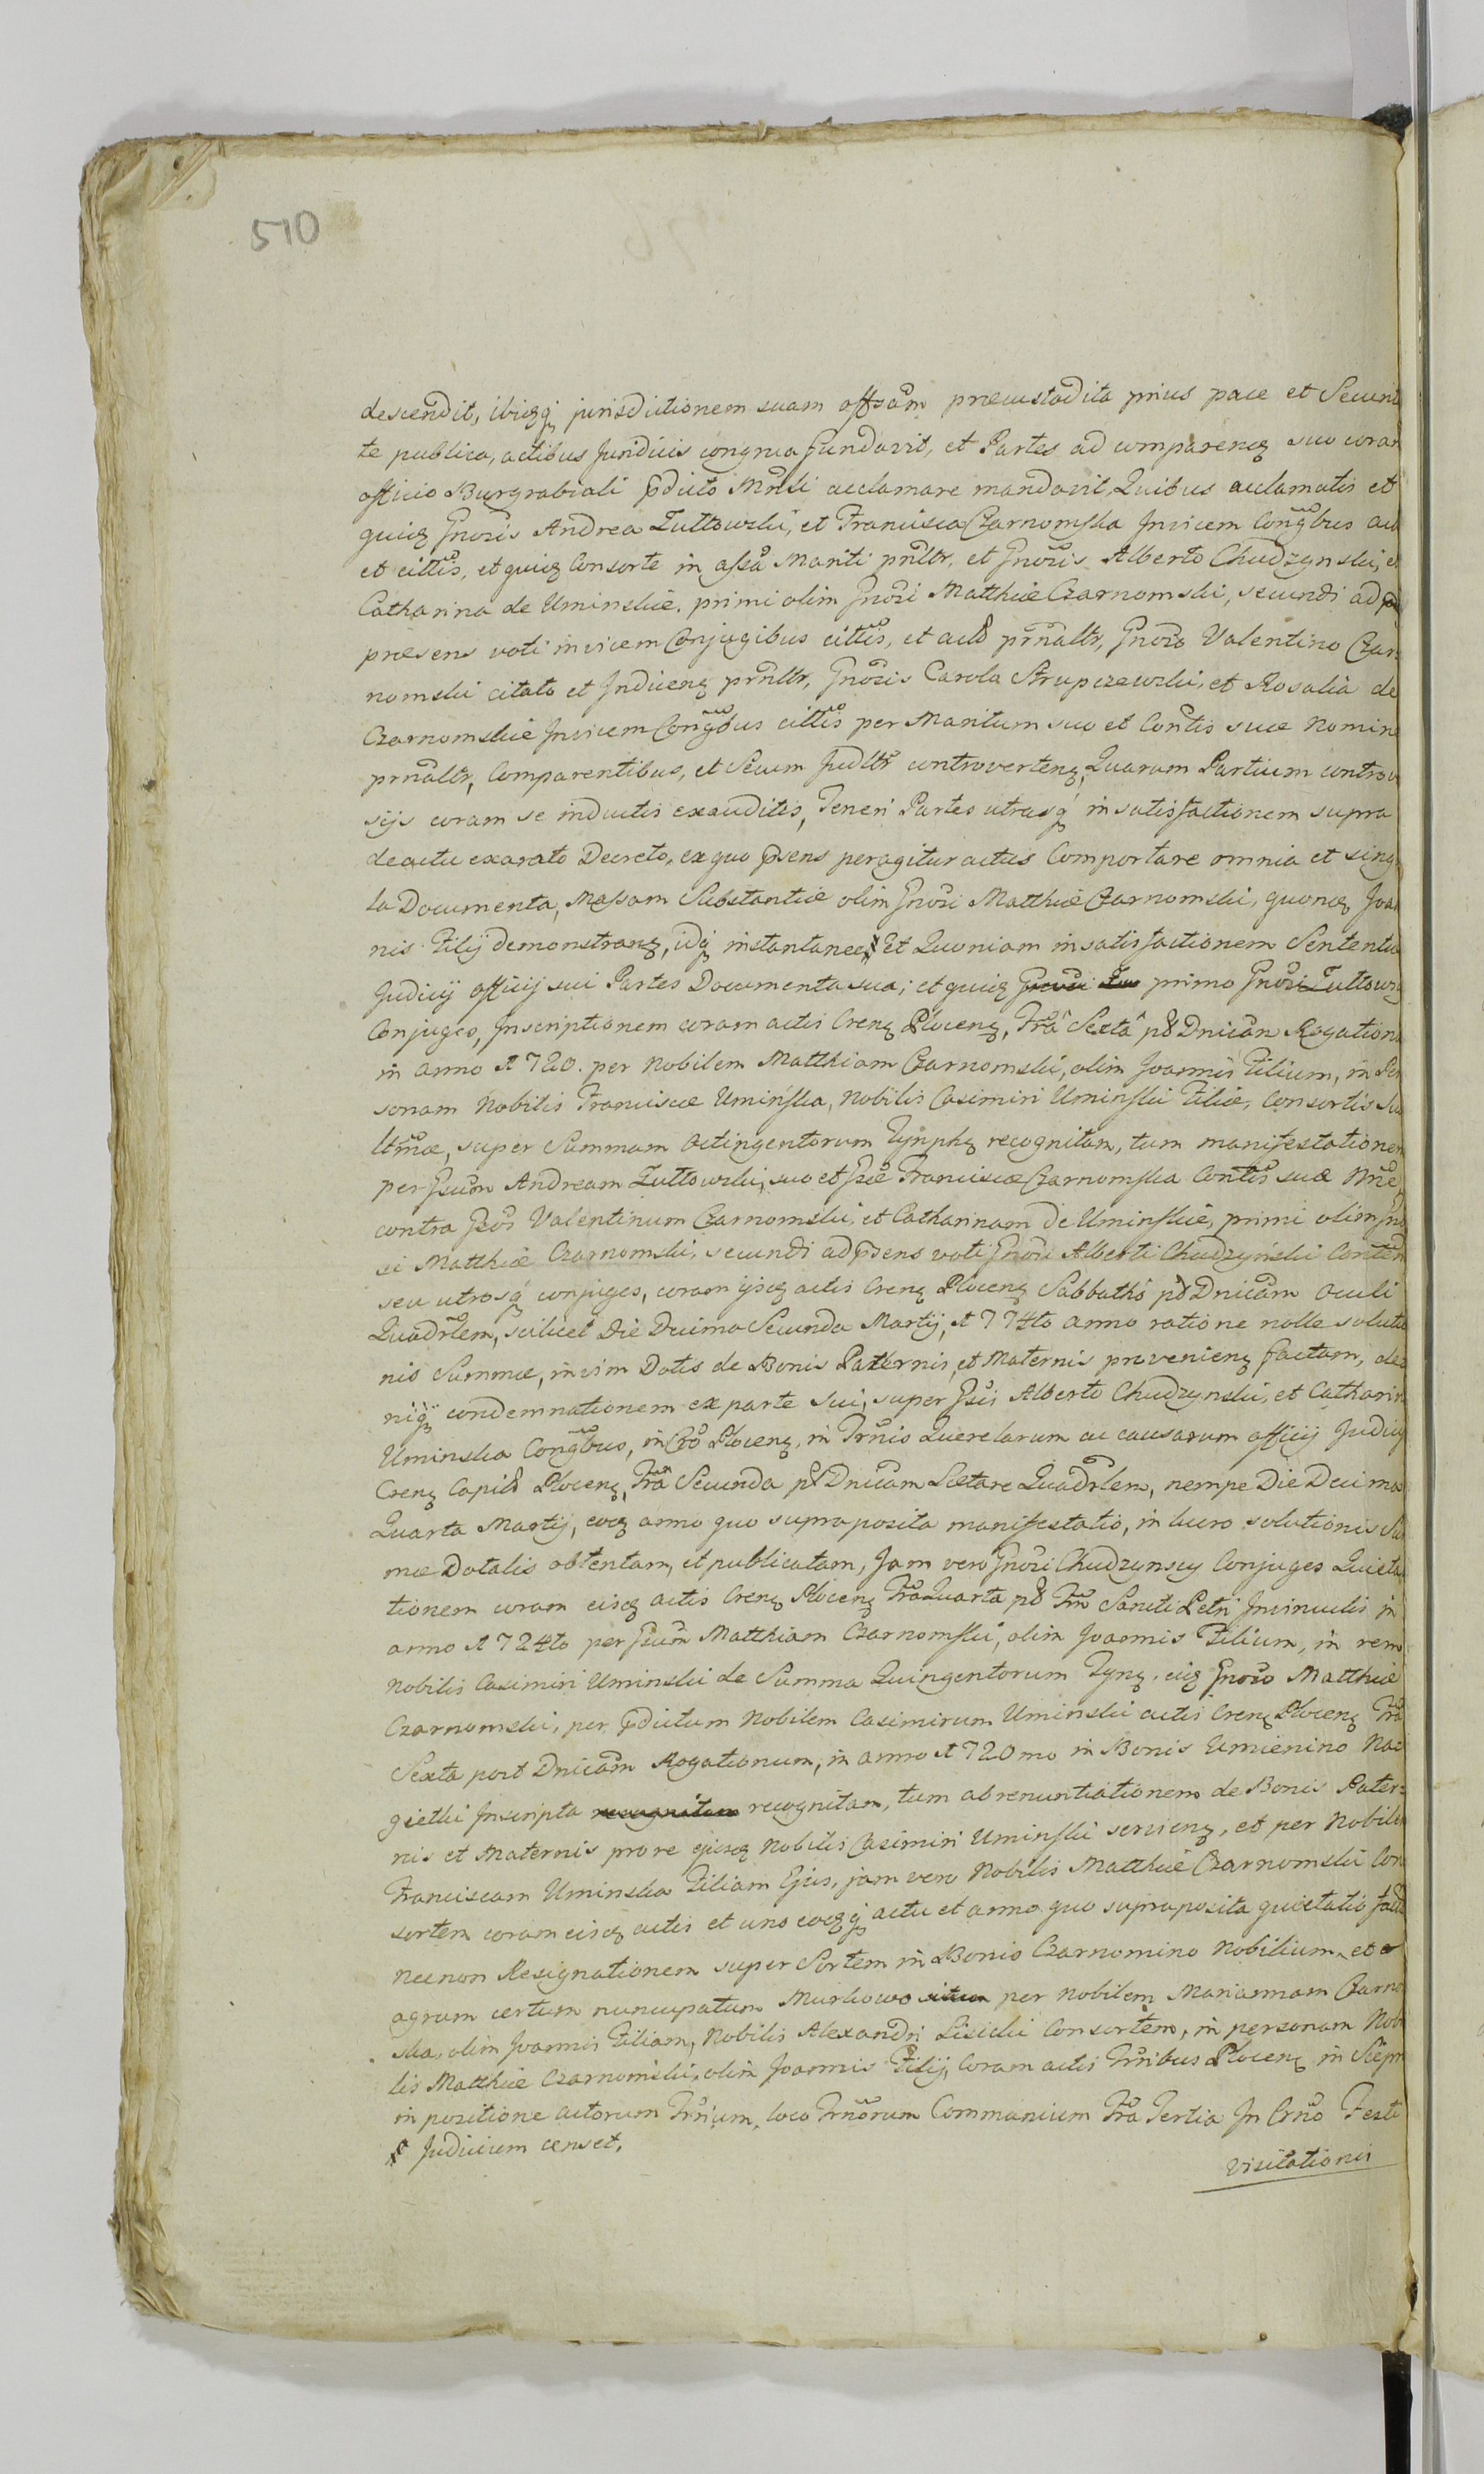 510
descendit, ibiqz jurisdictionem suam offsam præcustodita prius pace et Securit
te publica, actibus Juridicis congrua fundavit, et Partes ad comparenq suo coram
officio Burgrabiali pdicto Mnsli acclamare mandavit, Quibus acclamatis et
quiq Gnosis Andrea Tuttowski, et Francisca Czarnomska Invicem Congbus act
et cittis, et quiq Consorte in assa Mariti pnltr, et Gnosis Alberto Chudzynski, et
Catharina de Uminskie, primi olim Gnosi Matthiæ Czarnomski, secundi ad
præsens voti invicem Conjugibus cittis, et act prnaltr, Gnoso Valentino Czar
nomski citato et Judicenq prnltr, Gnosis Carolo Strupczewski, et Rosalia de
Czarnomskie Invicem Congbus cittis per Maritum suo et Contis suæ Nomine
prnaltr, Comparentibus, et Secum Judltr controvertenq, Quarum Partium controv
sijs coram se inductis exauditis, Teneri Partes utrasq in satisfactionem supra
de actu exarato Decreto, ex quo psens peragitur actus Comportare omnia et singu
la Documenta, Massam Substantiæ olim Gnosi Matthiæ Czarnomski, quonq Joan
nis Filij demonstranq, idq instantanee Et Quoniam in satisfactionem Sententiæ
Judicij officij sui Partes Documenta sua, et quiq primo Gnosi Tuttowscy
Conjuges, Inscriptionem coram actis Crenq Plocenq, Fria Sexta pt Dnicam Rogationu
in anno 1720. per Nobilem Matthiam Czarnomski, olim Joannis Filium, in Per
sonam Nobilis Franciscæ Uminska, Nobilis Casimiri Uminski Filiæ, Consortis Su
ltmæ, super Summam Octingentorum Tynphq recognitam, tum manifestationem
per Gsum Andream Tuttowski, suo et Gsæ Franciscæ Czarnomska Contis suæ Nne
contra Gsos Valentinum Czarnomski, et Catharinam de Uminskie, primi olim Gno
si Matthiæ Czarnomski, secundi ad psens voti Gnosi Alberti Chudzynski Contem
seu utrosq conjuges, coram ijsq actis Crenq Plocenq Sabbatho pt Dnicam Oculi
Quadrlem, scilicet Die Decima Secunda Martij, 1774to anno ratione nolle solutio
nis Summæ, in vim Dotis de Bonis Paternis, et Maternis provenienq factam, de
niq condemnationem ex parte sui, super Gsis Alberto Chudzynski, et Catharin
Uminska Congbus, in Cro Plocenq, in Trnis Querelarum ac causarum officij Judicij
Crenq Capit Plocenq, Fria Secunda pt Dnicam Lætare Quadrlem, nempe Die Decima
Quarta Martij, eoq anno quo supraposita manifestatio, in lucro solutionis Su
mæ Dotalis obtentam, et publicatam, Jam vero Gnosi Chudzynscy Conjuges Quieta
tionem coram eisq actis Crenq Plocenq Fria Quarta pt Fm Sancti Petri Invinculis in
anno 1724to per Gsum Matthiam Czarnomski, olim Joannis Filium, in rem
Nobilis Casimiri Uminski de Summa Quingentorum Tynq, eiq Gnoso Matthiæ
Czarnomski, per pdictum Nobilem Casimirum Uminski actis Crenq Plocenq Fria
Sexta post Dnicam Rogationum, in anno 1720mo in Bonis Umienino Nac
gietki Inscripta recognitam, tum abrenuntiationem de Bonis Pater=
nis et Maternis pro re ejusq Nobilis Casimiri Uminski servienq, et per Nobilem
Franciscam Uminska Filiam Ejus, jam vero Nobilis Matthiæ Czarnomski Con
sortem coram eisq actis et uno eoqzq actu et anno quo supraposita quietatio
necnon Resignationem super Sortem in Bonis Czarnomino Nobilium, et
agrum certum nuncupatum Murkowo per Nobilem Mariannam Czarno
ska, olim Joannis Filiam, Nobilis Alexandri Lisicki Consortem, in personam Nob
lis Matthiæ Czarnomski, olim Joannis Filij, Coram actis Trnibus Plocenq in
in positione actorum Trnium, loco Trnorum Communium Fria Tertia In Crno Festi
Judicium censet.
Visitationis